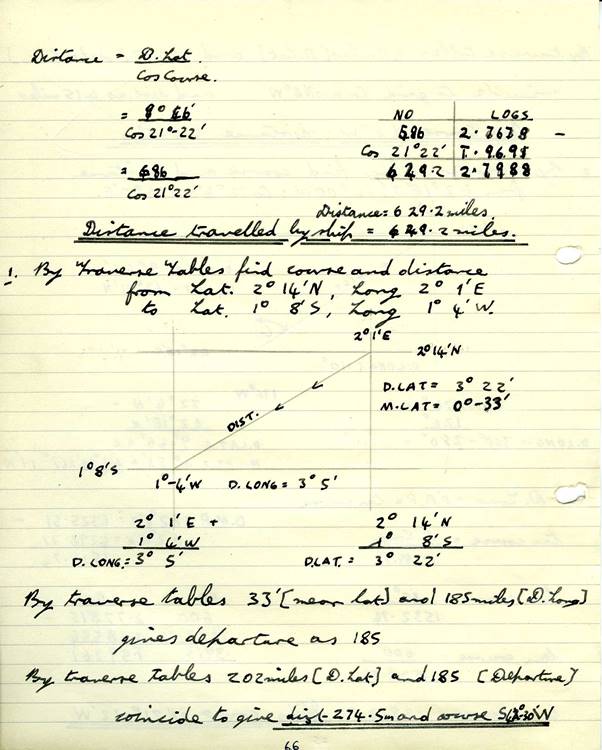 Distance = D. Lat.
Cos Course.
= 9° 46'
Cos 21°-22'
= 586
Cos 21°22'
NO LOGS
586 2.7678 -
Cos 21°22' 1.9691
629.2 2.7988
Distance = 629.2 miles.
Distance travelled by ship = 629.2 miles.
1. By Traverse Tables find course and distance
from Lat. 2° 14'N, Long 2° 1'E
to Lat. 1° 8'S, Long 1° 4'W.
2° 1'E
2° 14'N
D.LAT = 3° 22'
M.LAT = 0°-33'
DIST.
1° 8'S
1°-4'W D.LONG = 3° 5'
2° 1'E + 2° 14'N
1° 4'W 1° 8'S
D.LONG. = 3° 5' D.LAT. = 3° 22'
By traverse tables 33' [mean lat] and 185 miles [D.Long]
gives departure as 185
By traverse tables 202 miles [D.Lat] and 185 [Departure]
coincide to give dist- 274.5m and course
66